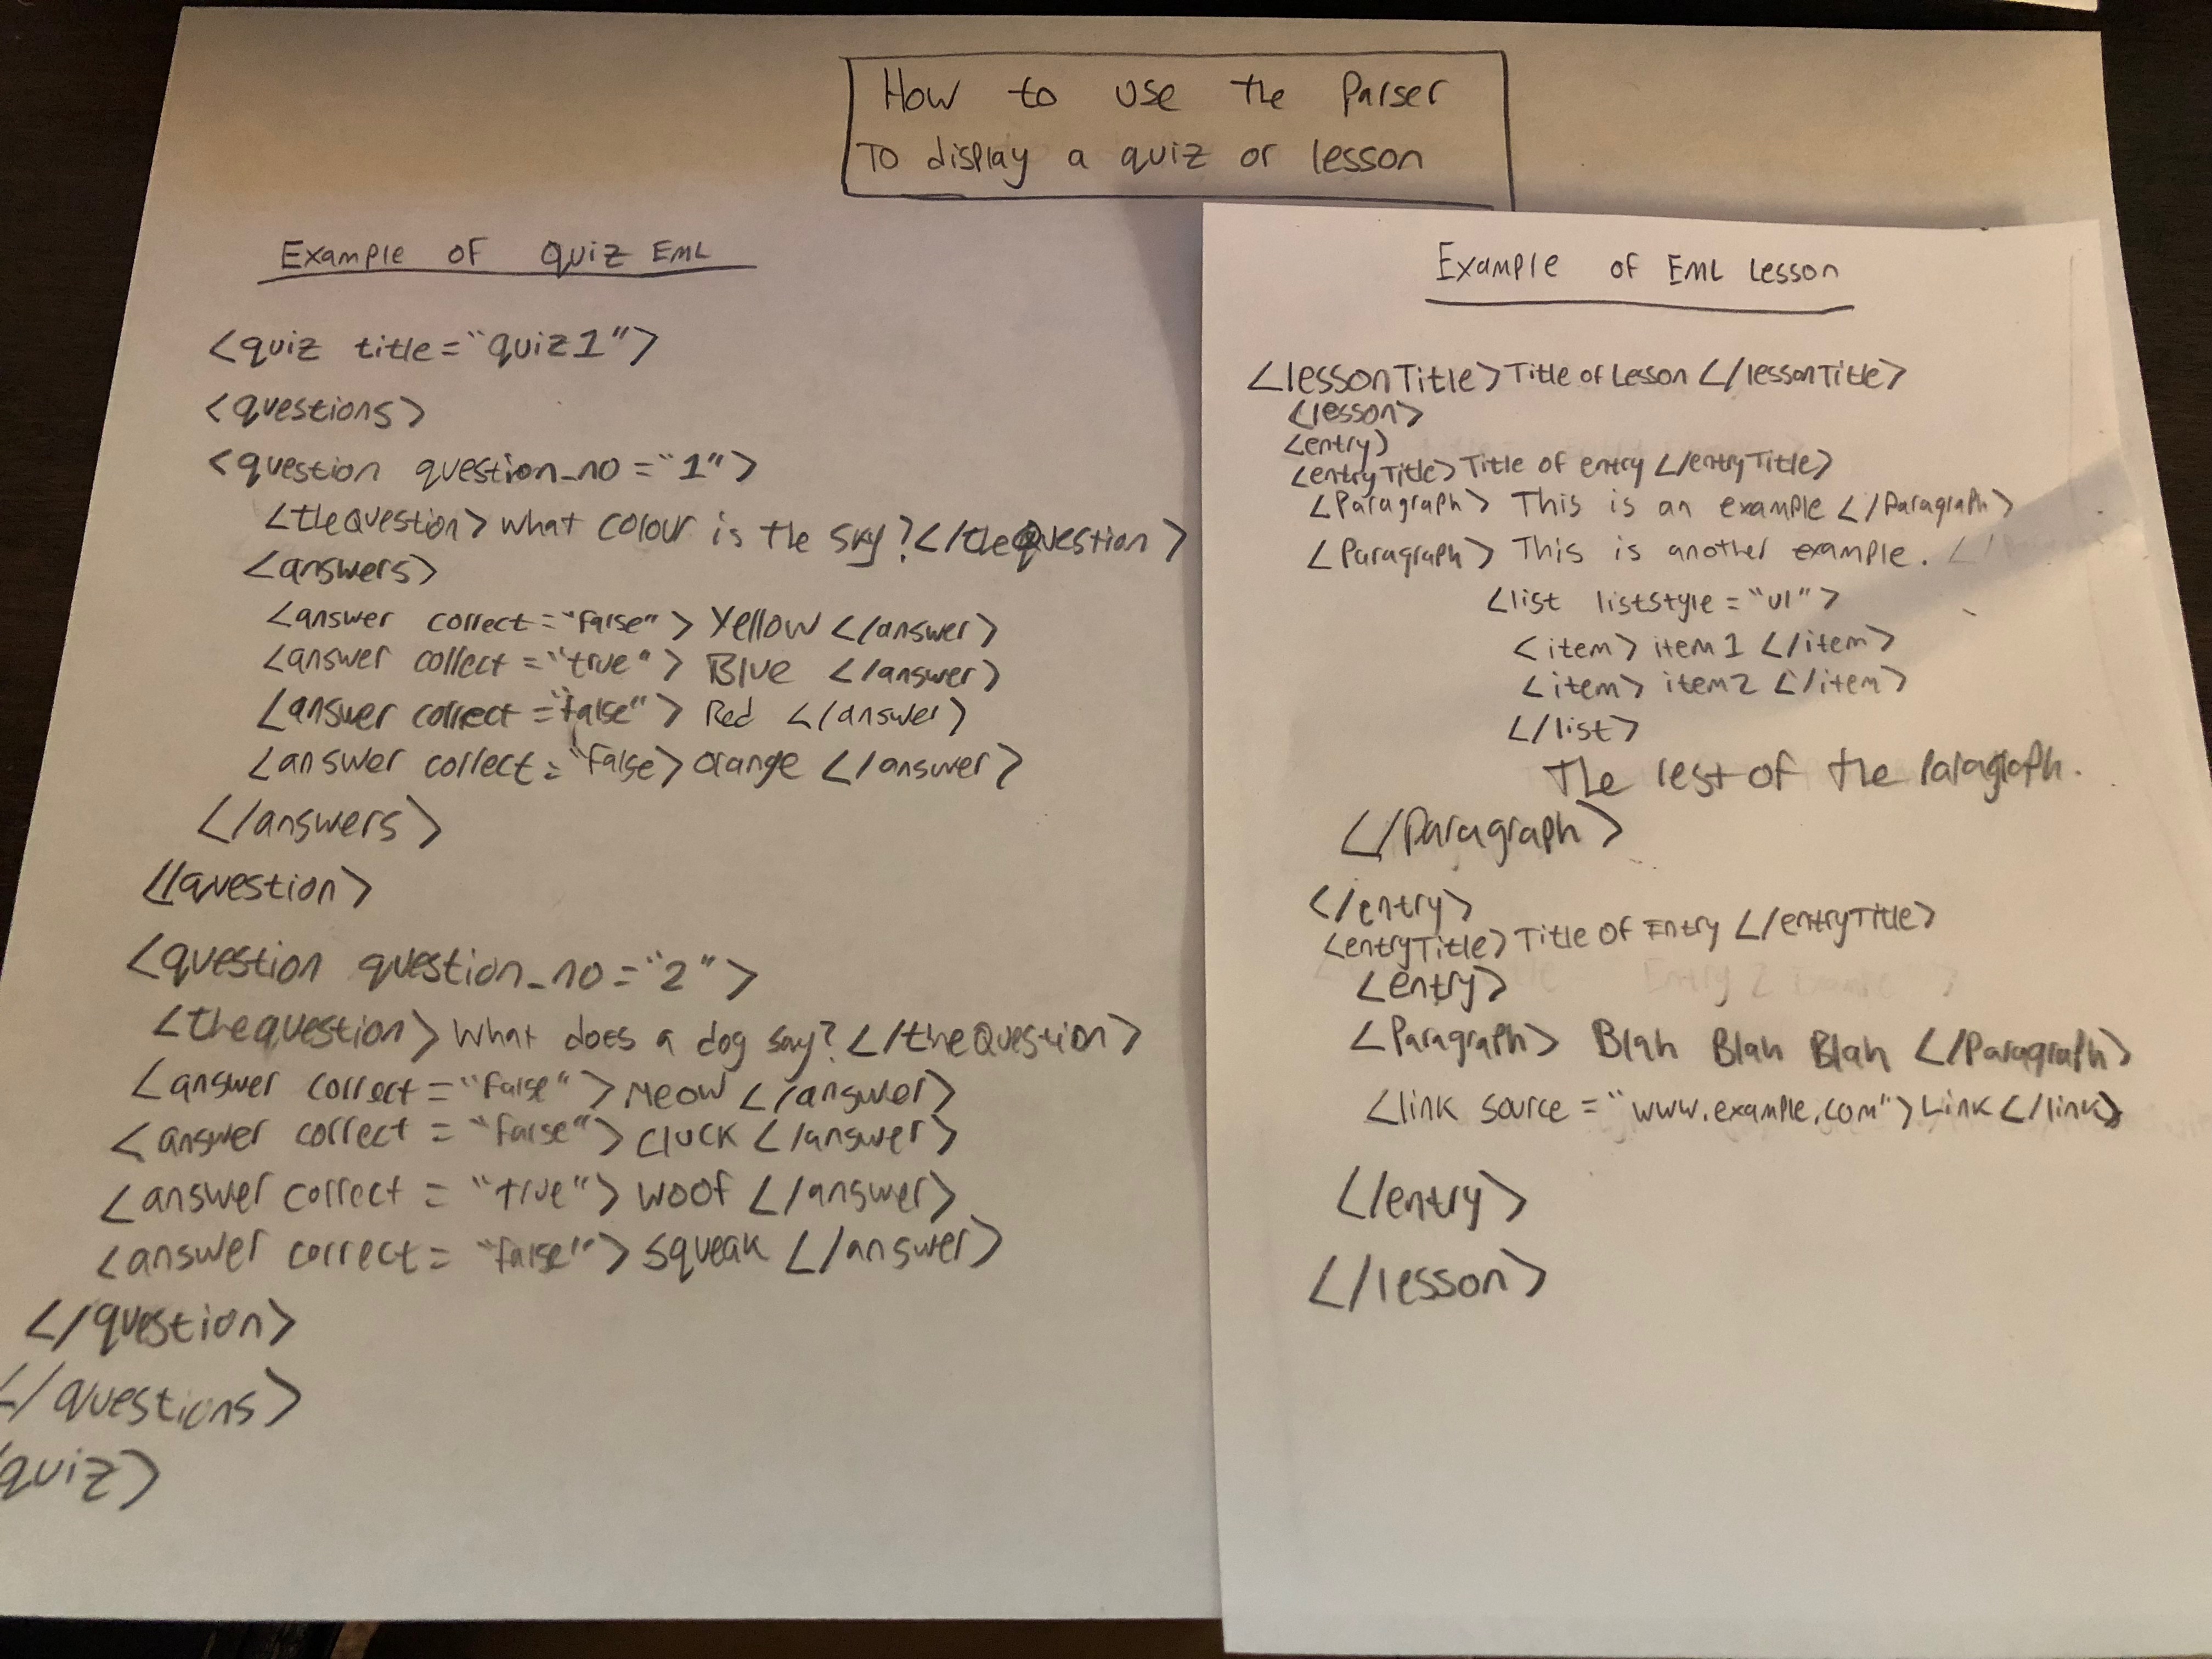 How to use the Parser
To display a quiz or lesson
Example of Quiz EML
<quiz title="quiz1">
<questions>
<question question_no="1">
<theQuestion> what colour is the sky?</theQuestion>
<answers>
<answer correct="false"> Yellow </answer>
<answer correct="true"> Blue </answer>
<answer correct="false"> Red </answer>
<answer correct="false> orange </answer>
</answers>
</question>
<question question_no="2">
<thequestion> What does a dog say? </theQuestion>
<answer correct="false"> Meow </answer>
<answer correct="false"> Cluck </answer>
<answer correct="true"> woof </answer>
<answer correct="false"> squeak </answer>
</question>
</questions>
quiz>
Example of EML Lesson
<lessonTitle> Title of Lesson </lessonTitle>
<lesson>
<entry>
<entryTitle> Title of entry </entryTitle>
<Paragraph> This is an example </Paragraph>
<Paragraph> This is another example.
<list liststyle="ul">
<item> item1 </item>
<item> item2 </item>
</list>
The rest of the Paragraph.
</Paragraph>
</entry>
<entryTitle> Title of Entry </entryTitle>
<entry>
<Paragraph> Blah Blah Blah </Paragraph>
<link source="www.example.com"> Link </link>
</entry>
</lesson>